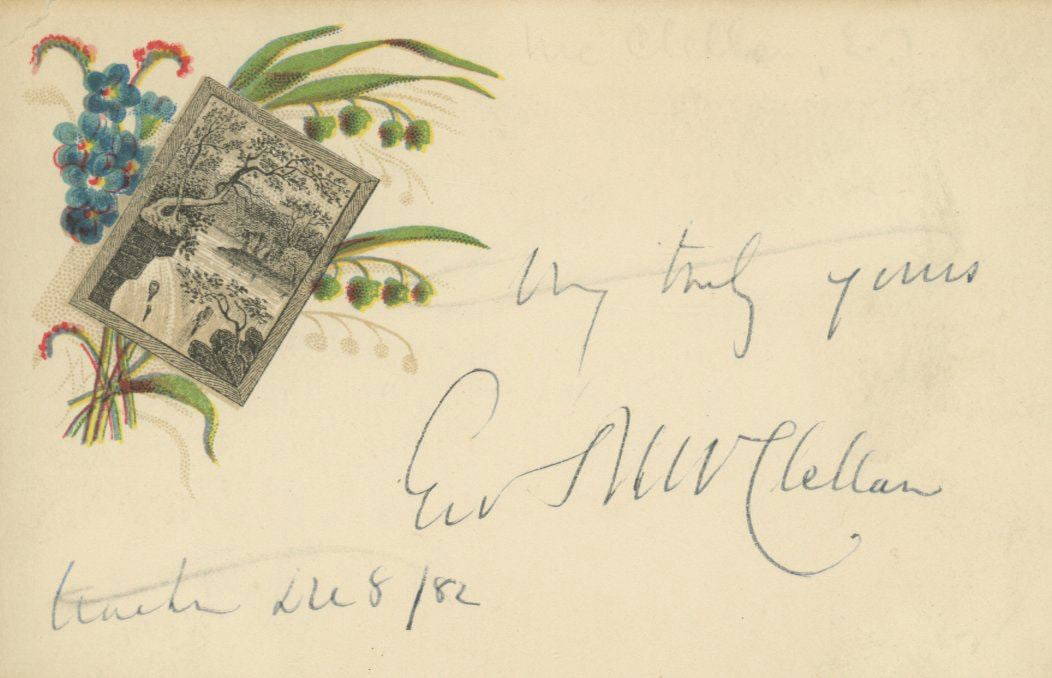 Very truly yours
Geo B McClellan
Trenton Dec 8/82